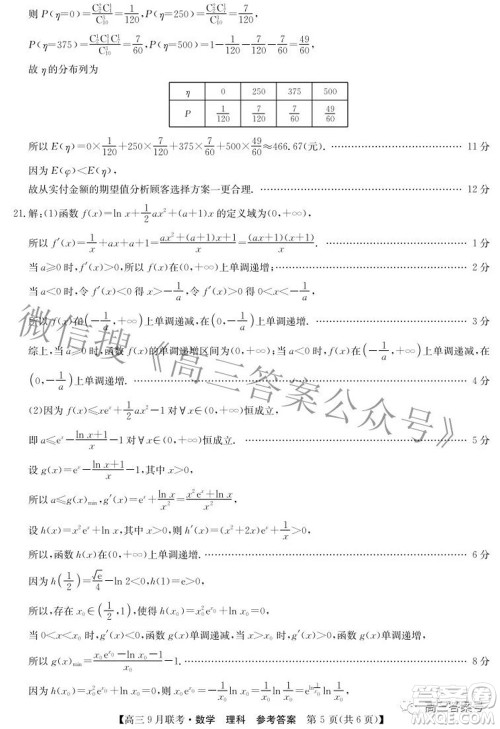 则 P(η=0)=C₃³C₇⁰/C₁₀³=1/120, P(η=250)=C₃²C₇¹/C₁₀³=7/60,
故 η 的分布列为
η 0 250 375 500
P 1/120 7/120 7/60 49/60
所以 E(η)=0×1/120+250×7/120+375×7/60+500×49/60≈466.67(元). 11 分
因为 E(φ)<E(η),
故从实付金额的期望值分析顾客选择方案一更合理. 12 分
21.解:(1)函数 f(x)=ln x+1/2ax²+(a+1)x 的定义域为(0,+∞),
所以 f′(x)=1/x+ax+a+1=(ax²+(a+1)x+1)/x=(ax+1)(x+1)/x. 1 分
当 a≥0 时,f′(x)>0,所以 f(x)在(0,+∞)上单调递增; 2 分
当 a<0 时,令 f′(x)<0 得 x>-1/a,令 f′(x)>0 得 0<x<-1/a,
所以 f(x)在(-1/a,+∞)上单调递减,在(0,-1/a)上单调递增. 3 分
综上,当 a≥0 时,函数 f(x)的单调递增区间为(0,+∞);当 a<0 时,f(x)在(-1/a,+∞)上单调递减,在
(0,-1/a)上单调递增. 4 分
(2)因为 f(x)≤xeˣ+1/2ax²-1 对∀x∈(0,+∞)恒成立,
即 a≤eˣ-(ln x+1)/x-1 对∀x∈(0,+∞)恒成立. 5 分
设 g(x)=eˣ-(ln x+1)/x-1,其中 x>0,
所以 a≤g(x)min,g′(x)=(x²eˣ+ln x)/x²,
设 h(x)=x²eˣ+ln x,其中 x>0,则 h′(x)=(x²+2x)eˣ+1/x>0,
所以,函数 h(x)在(0,+∞)上单调递增. 6 分
因为 h(1/2)=√e/4-ln 2<0,h(1)=e>0,
所以,存在 x₀∈(1/2,1),使得 h(x₀)=x₀²e^x₀+ln x₀=0,
当 0<x<x₀ 时,g′(x)<0,函数 g(x)单调递减,当 x>x₀ 时,g′(x)>0,函数 g(x)单调递增,
所以 g(x)min=(x₀e^x₀-ln x₀-1)/x₀-1. 8 分
高三 9 月联考·数学 理科 参考答案 第 5 页(共 6 页)
微信搜《高三答案公众号》
高三答案号
答案圈